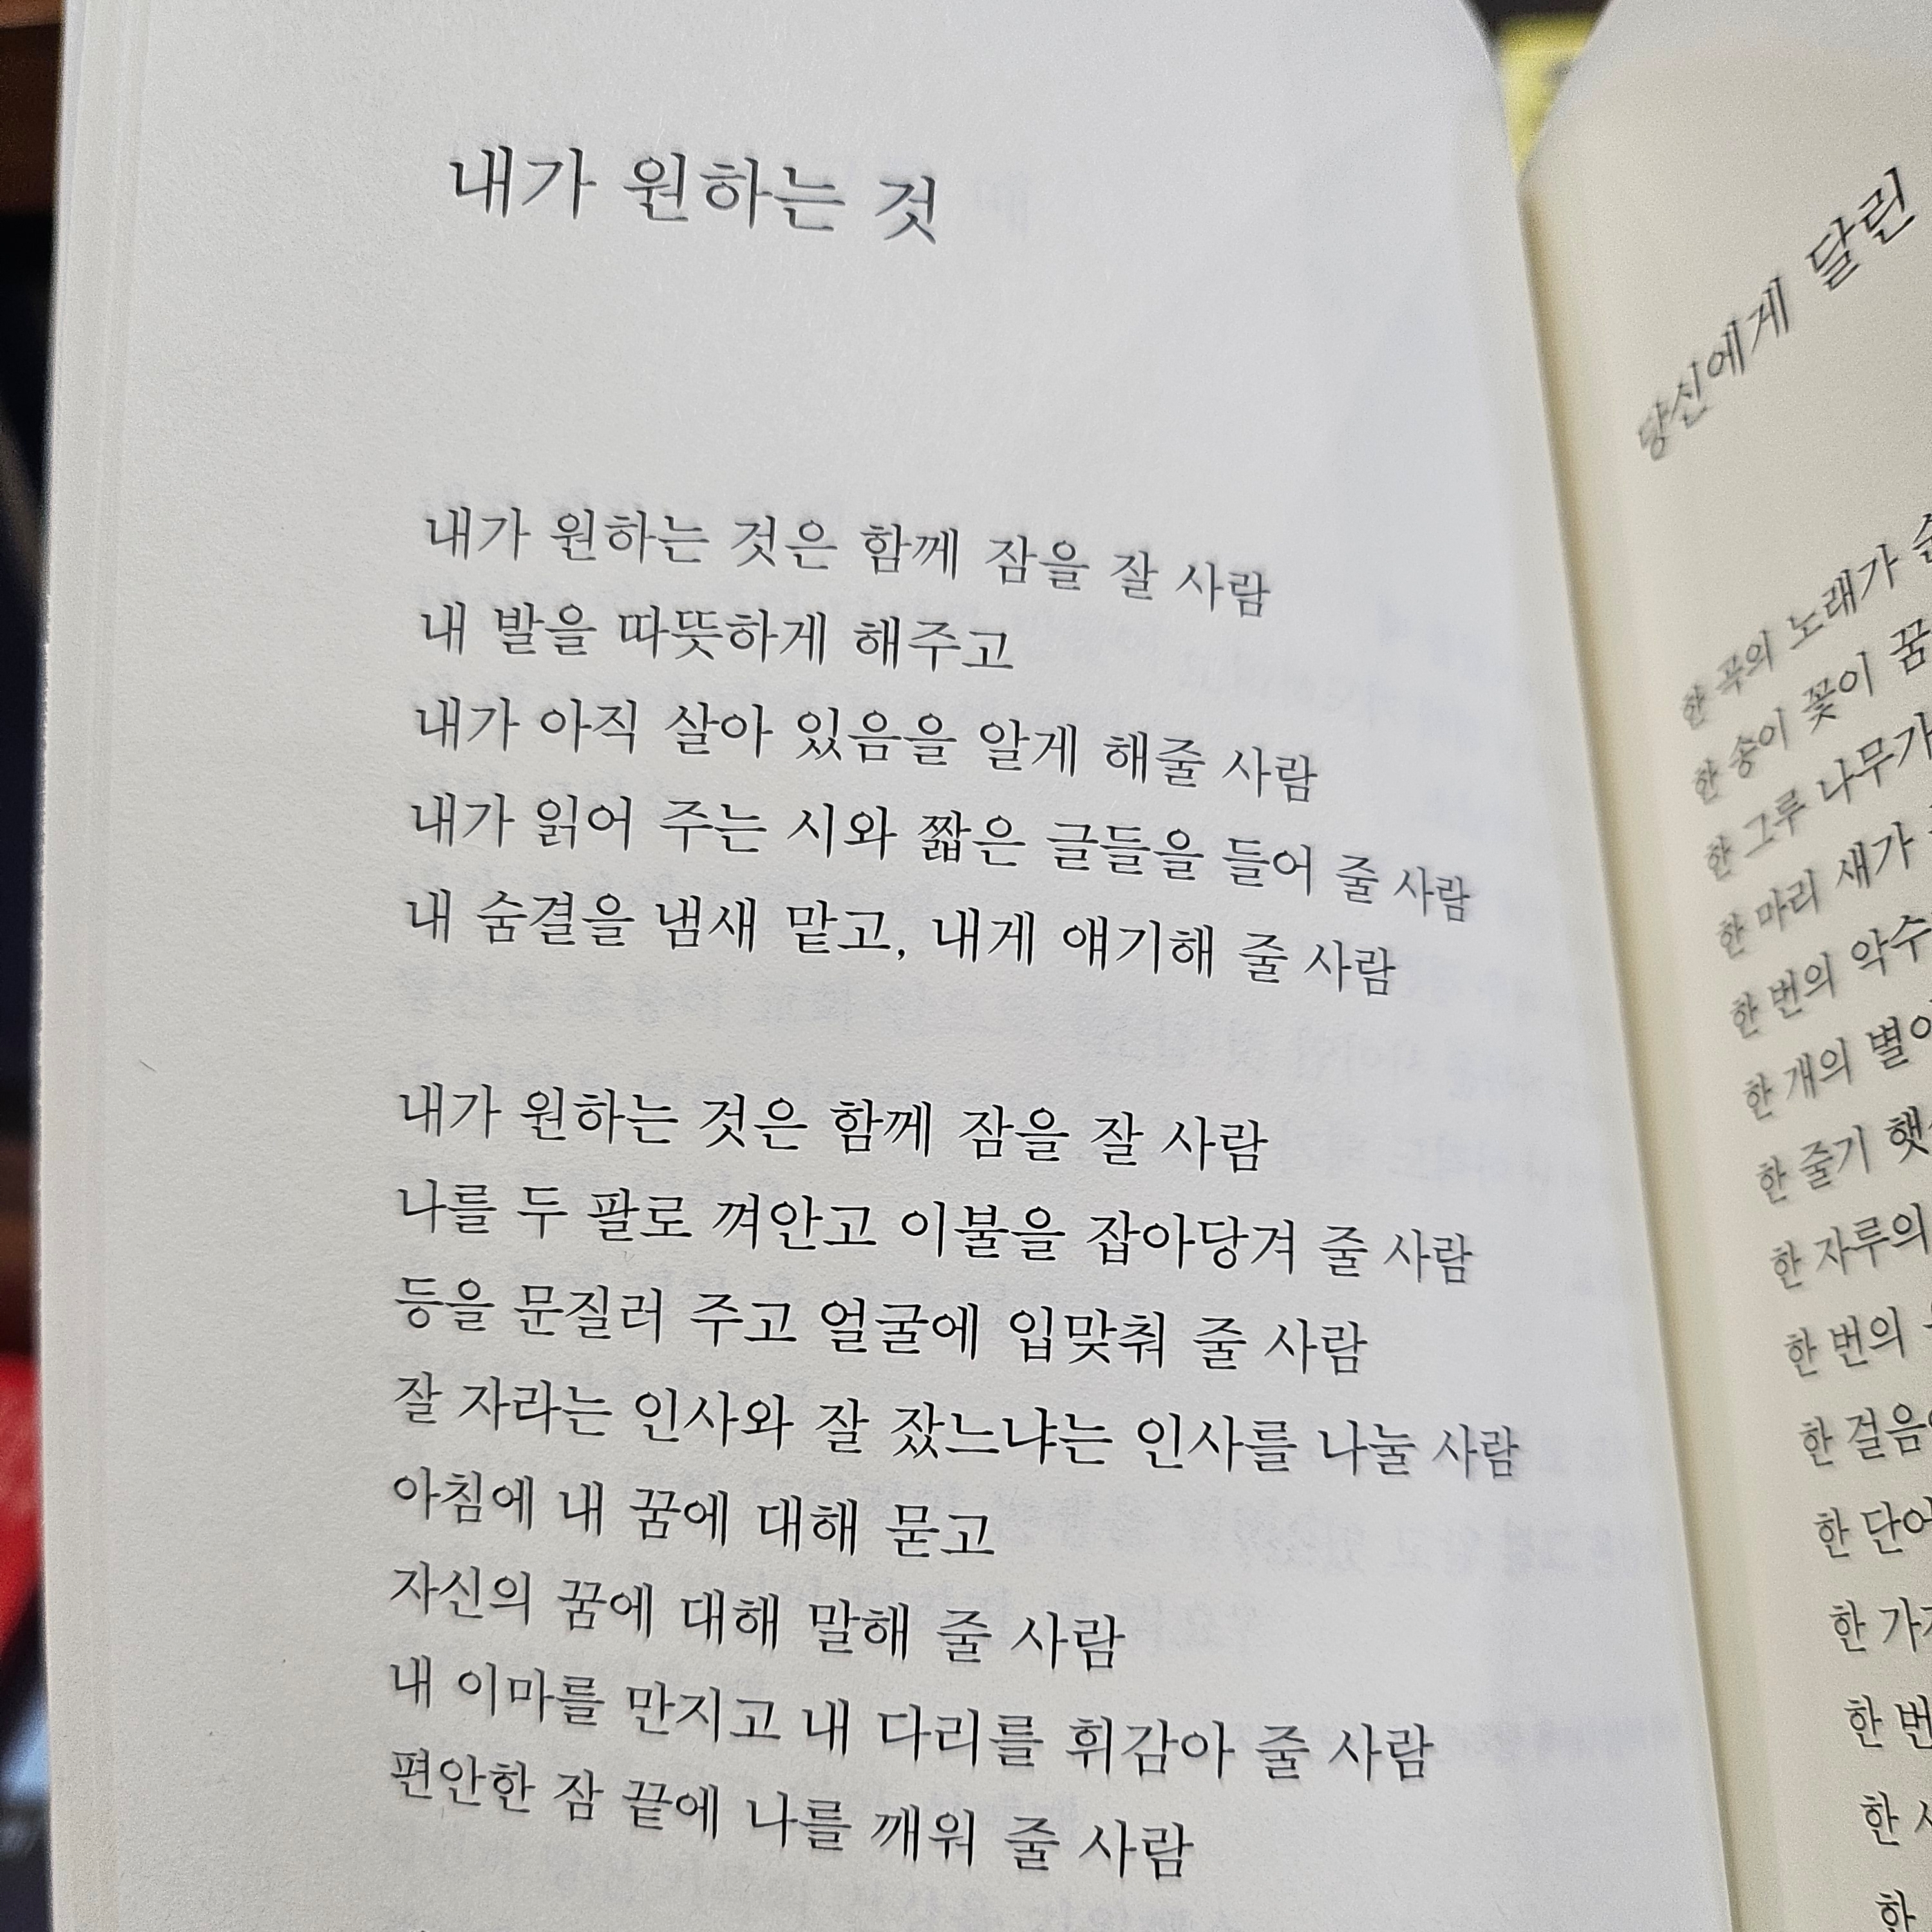 내가 원하는 것
내가 원하는 것은 함께 잠을 잘 사람
내 발을 따뜻하게 해주고
내가 아직 살아 있음을 알게 해줄 사람
내가 읽어 주는 시와 짧은 글들을 들어 줄 사람
내 숨결을 냄새 맡고, 내게 얘기해 줄 사람
내가 원하는 것은 함께 잠을 잘 사람
나를 두 팔로 껴안고 이불을 잡아당겨 줄 사람
등을 문질러 주고 얼굴에 입맞춰 줄 사람
잘 자라는 인사와 잘 잤느냐는 인사를 나눌 사람
아침에 내 꿈에 대해 묻고
자신의 꿈에 대해 말해 줄 사람
내 이마를 만지고 내 다리를 휘감아 줄 사람
편안한 잠 끝에 나를 깨워 줄 사람
당신에게 달린
한 곡의 노래가
한 송이 꽃이 꿈
한 그루 나무가
한 마리 새가
한 번의 악수
한 개의 별이
한 줄기
한 자루의
한 번의
한 걸음
한
한
한 번
한
한